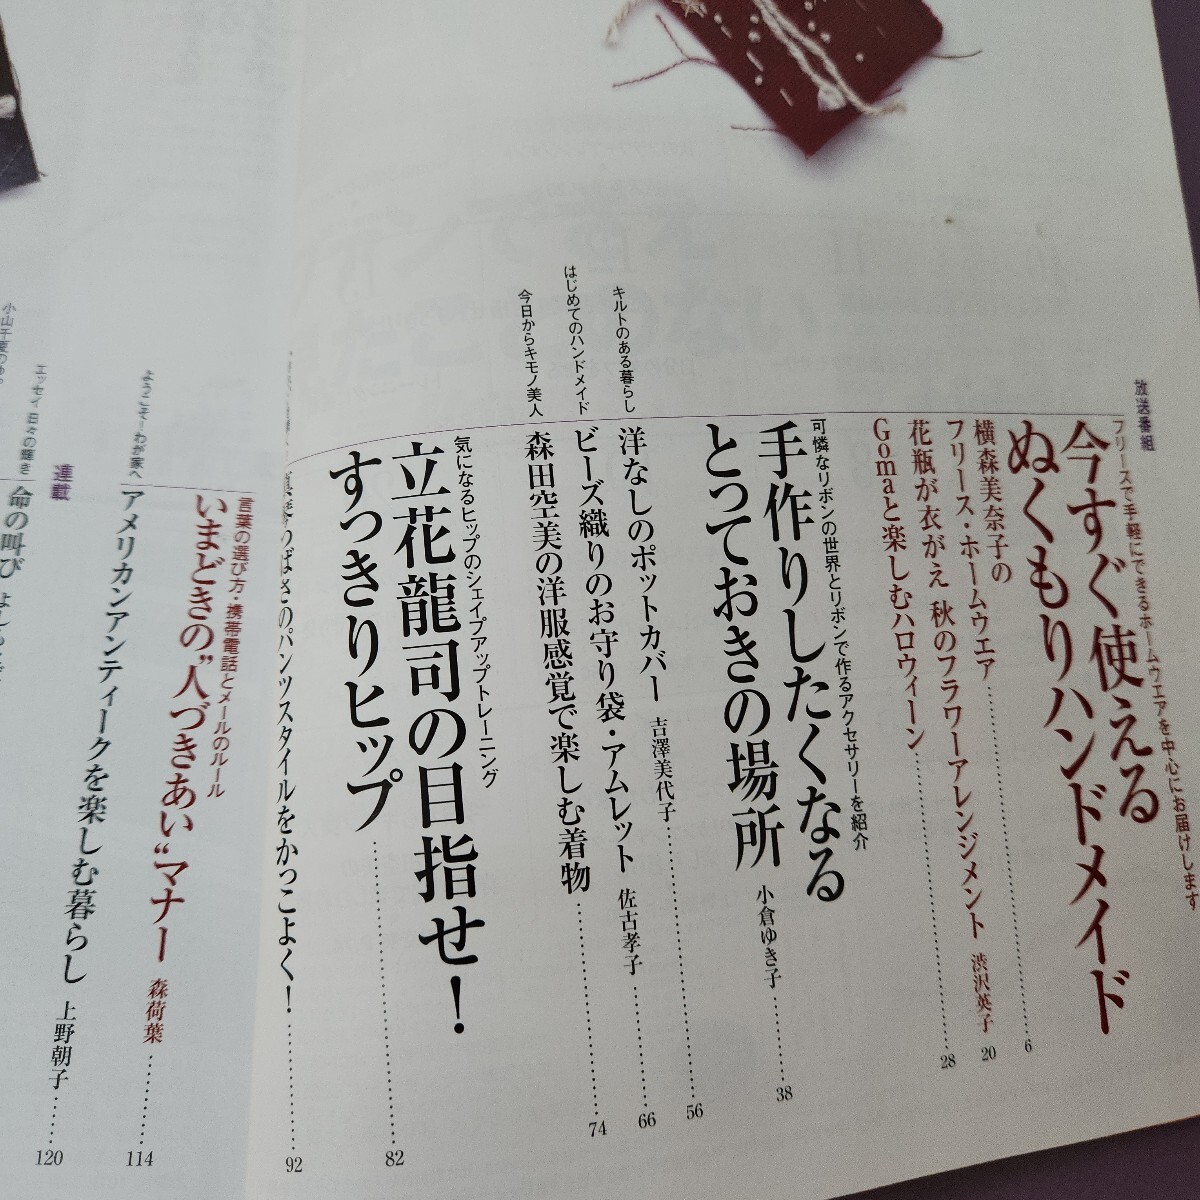 放送番組
フリースで手軽にできるホームウエアを中心にお届けします
今すぐ使える
ぬくもりハンドメイド
横森美奈子の
フリース・ホームウエア……6
花瓶が衣がえ 秋のフラワーアレンジメント 渋沢英子 20
Gomaと楽しむハロウィーン……28
可憐なリボンの世界とリボンで作るアクセサリーを紹介
手作りしたくなる
とっておきの場所 小倉ゆき子……38
キルトのある暮らし
洋なしのポットカバー 吉澤美代子……56
はじめてのハンドメイド
ビーズ織りのお守り袋・アムレット 佐古孝子……66
今日からキモノ美人
森田空美の洋服感覚で楽しむ着物……74
気になるヒップのシェイプアップトレーニング
立花龍司の目指せ！
すっきりヒップ……82
つばさのパンツスタイルをかっこよく！……92
言葉の選び方・携帯電話とメールのルール
いまどきの"人づきあい"マナー 森荷葉……114
ようこそ！わが家へ
アメリカンアンティークを楽しむ暮らし 上野朝子……120
連載
エッセイ 日々の輝き
命の叫び
小山千夏の